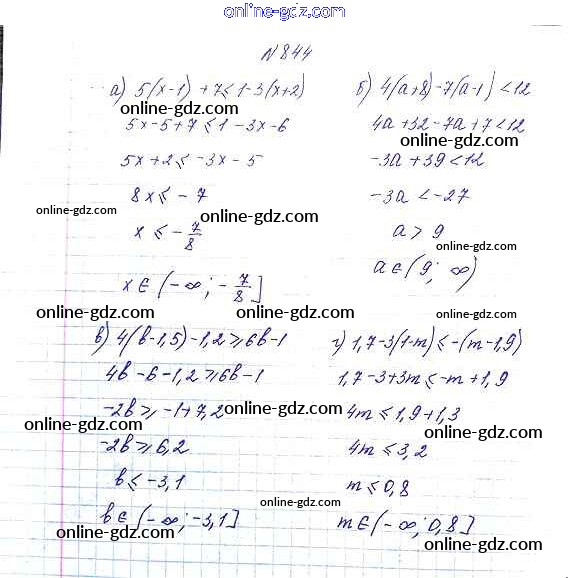 online-gdz.com
N 844
а) 5(x-1) + 7 ≤ 1-3(x+2)
5x-5+7 ≤ 1-3x-6
5x+2 ≤ -3x-5
8x ≤ -7
x ≤ -7/8
x ∈ (-∞; -7/8]
б) 4(a+8)-7(a-1) < 12
4a+32-7a+7 < 12
-3a+39 < 12
-3a < -27
a > 9
a ∈ (9; ∞)
в) 4(b-1,5)-1,2 ≥ 6b-1
4b-6-1,2 ≥ 6b-1
-2b ≥ -1+7,2
-2b ≥ 6,2
b ≤ -3,1
b ∈ (-∞; -3,1]
г) 1,7-3(1-m) ≤ -(m-1,9)
1,7-3+3m ≤ -m+1,9
4m ≤ 1,9+1,3
4m ≤ 3,2
m ≤ 0,8
m ∈ (-∞; 0,8]
online-gdz.com
online-gdz.com
online-gdz.com
online-gdz.com
online-gdz.com
online-gdz.com
online-gdz.com
online-gdz.com
online-gdz.com
online-gdz.com
online-gdz.com
online-gdz.com
online-gdz.com
online-gdz.com